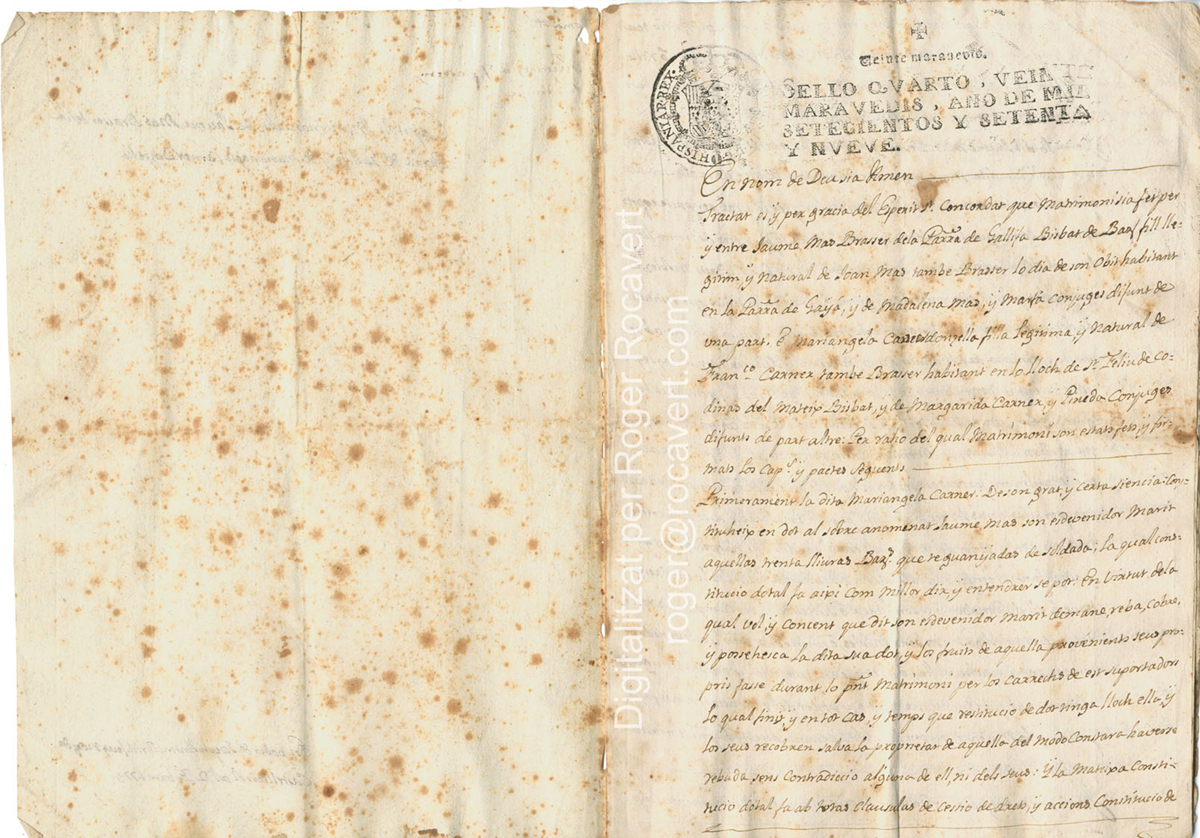 HISPANIAR. REX.
Veinte maravedis.
SELLO QVARTO, VEINTE
MARAVEDIS, AÑO DE MIL
SETECIENTOS Y SETENTA
Y NVEVE.
En nom de Deu sia Amen
Tractat es, y per gracia del Esperit St. Concordat que Matrimoni sia fet per
y entre Jaume Mas Brasser de la Parra. de Gallifa Bisbat de Bar. fill lle-
gitim y Natural de Joan Mas tambe Brasser lo dia de son Obit habitant
en la Parra. de Gayá, y de Madalena Mas, y Conjuges difunt de
una part. E Mariangela Carner donzella filla legitima y Natural de
Franco. Carner tambe Brasser habitant en lo lloch de St. Feliu de Co-
dinas del Mateix Bisbat, y de Margarida Carner, y Pineda Conjuges
difunts de part altre: Per raho del qual Matrimoni son estats fets, y fir-
mats los Capls. y pactes seguents
Primerament la dita Mariangela Carner: De son grat, y certa siencia: Con-
stituheix en dot al sobre anomenat Jaume Mas son esdevenidor Marit
aquellas trenta lliuras que te guanyadas de soldada; la qual cons-
titucio dotal fa aixi com Millor dir, y entendrer se pot: En virtut de la
qual vol, y concent que dit son esdevenidor Marit demane, reba, cobre,
y possehesca la dita sua dot, y los fruits de aquella provenients seus pro-
pris fasse durant lo pnt. Matrimoni per los carrechs de est suportador
lo qual finit, y en tot cas, y temps que restitucio de dot tinga lloch ella, y
los seus recobren salva la proprietat de aquella del Modo Constara haverse
rebuda sens Contradiccio alguna de ell, ni dels seus: Y la Mateixa Consti-
tucio dotal fa ab totas Clausulas de Cessio de drets, y accions Constitucio de
Digitalitzat per Roger Rocavert
roger@rocavert.com